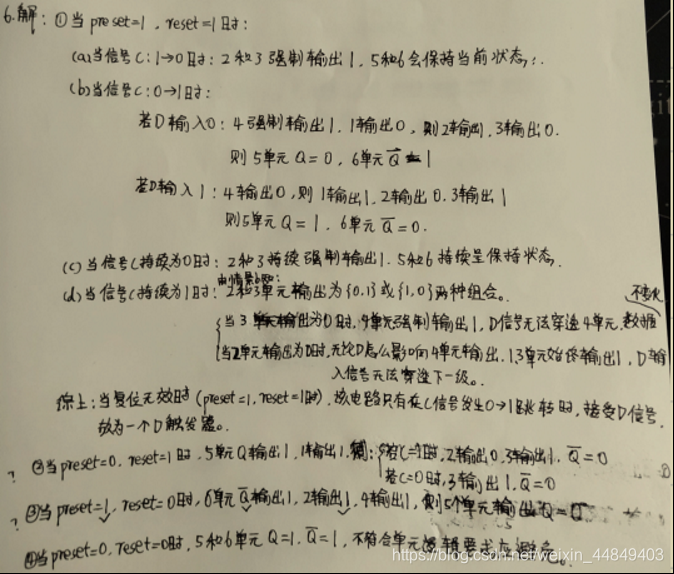 6.解：①当 preset=1，reset=1时：
(a)当信号C：1→0时：2和3强制输出1，5和6会保持当前状态；
(b)当信号C：0→1时：
若D输入0：4强制输出1，1输出0，则2输出1，3输出0.
则5单元Q=0，6单元Q̅=1
若D输入1：4输出0，则1输出1，2输出0，3输出1
则5单元Q=1，6单元Q̅=0.
(c)当信号C持续为0时：2和3持续强制输出1，5和6持续呈保持状态.
由情景b知：
(d)当信号C持续为1时：2和3单元输出为{0,1}或{1,0}两种组合。
不变化
当3单元输出为0时，4单元强制输出1，D信号无法穿透4单元，数据
当2单元输出为0时，无论D怎么影响4单元输出，1,3单元始终输出1，D输
入信号无法穿透下一级。
综上：当复位无效时(preset=1，reset=1时)，该电路只有在C信号发生0→1跳转时，接受D信号，
故为一个D触发器。
? ②当preset=0，reset=1时，5单元Q输出1，1输出1，若C=1时，2输出0，3输出1，Q̅=0
若C=0时，3输出1，Q̅=0
? ③当preset=1，reset=0时，6单元Q̅输出1，2输出1，4输出1，则5个单元输出Q=0
④当preset=0，reset=0时，5和6单元Q=1，Q̅=1，不符合单元逻辑要求应避免。
https://blog.csdn.net/weixin_44849403